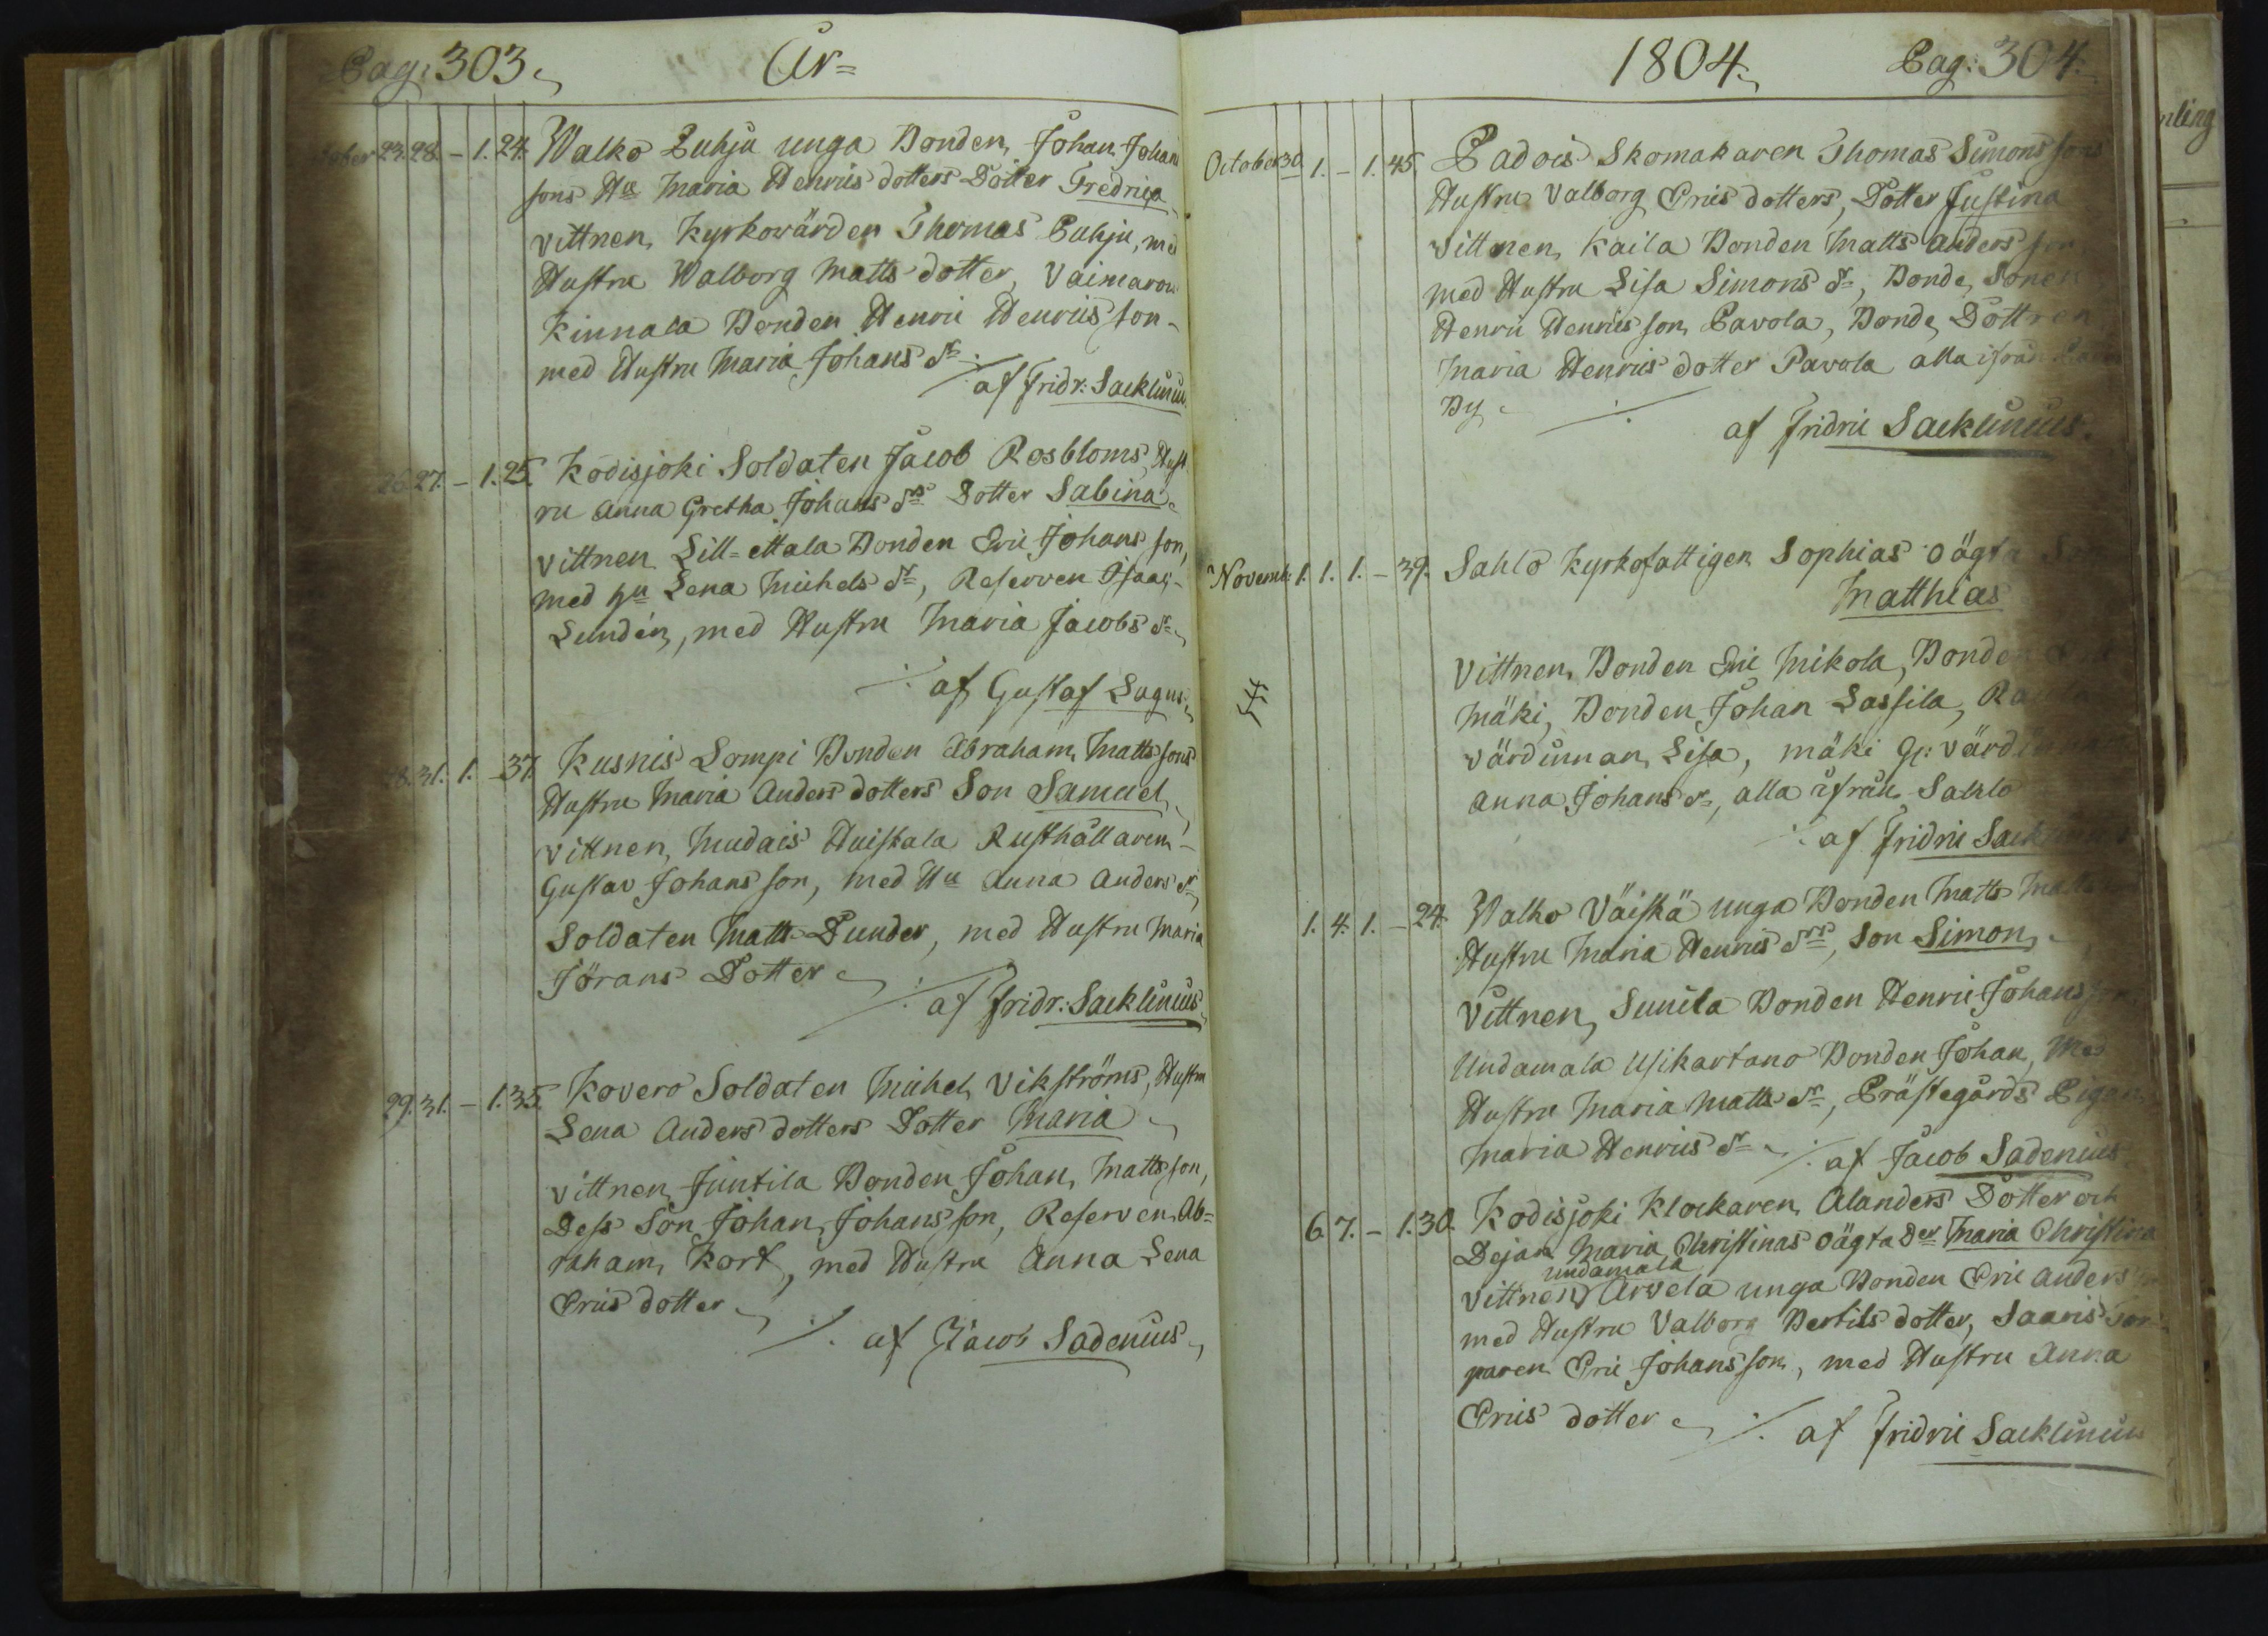 Pag: 303.
År=
October 23. 28. - 1. 24. Walko Puhju unga Bonden, Johan Johans
sons Hu Maria Henrics dotters Dotter Fredrica
vittnen, Kyrkovärden Thomas Puhju, med
Hustru Walborg Matts dotter, Vaimaron
Kinnala Bonden Henric Henrics son
med Hustru Maria Johans dr ./.
af Fridr: Sacklinius
26. 27. - 1. 25. Kodisjoki Soldaten Jacob Rosbloms, Hust
ru Anna Gretha Johans drs Dotter Sabina
vittnen Lill=ettala Bonden Eric Johans son,
med hu Lena Michels dr, Reserven Isaac
Lundén, med Hustru Maria Jacobs dr
./. af Gustaf Lagus
28. 31. 1. - 37. Kusnis Lompi Bonden Abraham Matts sons
Hustru Maria Anders dotters Son Samuel
vittnen, Mudais Huiskala Rusthållaren
Gustav Johans son, med Hu Anna Anders dr
Soldaten Matts Dunder, med Hustru Maria
Jörans Dotter
./. af Fridr: Sacklinius
29. 31. - 1. 35. Kovero Soldaten Michel Vikströms, Hustru
Lena Anders dotters Dotter Maria
vittnen, Juntila Bonden Johan, Matts son,
Dess Son Johan Johans son, Reserven Ab=
raham, Kort, med Hustru Anna Lena
Erics dotter
./. af Jacob Sadenius
1804.
Pag: 304.
October 30. 1. - 1. 45. Padois Skomakaren Thomas Simons sons
Hustru Valborg Erics dotters, Dotter Justina
vittnen, Kaila Bonden Matts Anders son,
med Hustru Lisa Simons dr, Bonde, Sonen
Henric Henrics son Pavola, Bonde, Dottren
Maria Henrics dotter Pavola alla ifrån
By ./.
af Fridric Sacklinius.
Novemb: 1. 1. 1. - 39. Sahlo Kyrkofattigen Sophias oägta
Matthias
Vittnen, Bonden Eric Mikola, Bonden
Mäki, Bonden Johan Lassila,
värdinnan, Lisa, mäki g: värdinnan
Anna Johans dr, alla ifrån Sahlo
./. af Fridric Sacklinius
1. 4. 1. - 24. Walko Väiskä unga Bonden Matts Matts
Hustru Maria Henrics drs, Son Simon
Vittnen, Sunila Bonden Henric Johans son
Undamala Usikartano Bonden Johan, Med
Hustru Maria Matts dr, Prästegårds Pigan
Maria Henrics dr ./. af Jacob Sadenius
6. 7. - 1. 30. Kodisjoki Klockaren Alanders Dotter och
Dejan Maria Christinas oägta Der Maria Christina
undamala
vittnen, Arvela unga Bonden Eric Anders
med Hustru Valborg Bertils dotter, Saaris
paren Eric Johans son, med Hustru Anna
Erics dotter ./. af Fridric Sacklinius
nling